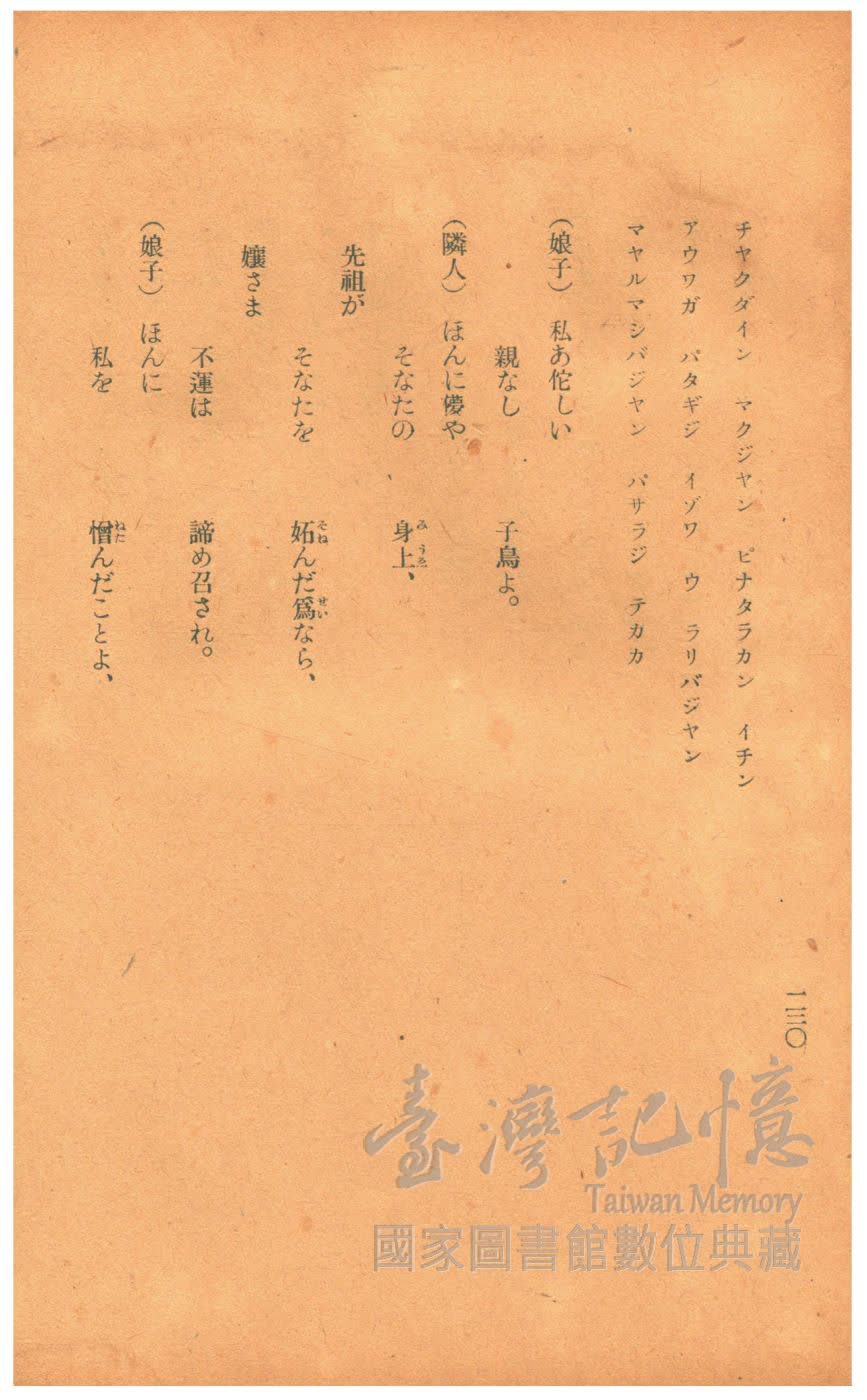 一三〇
チヤクダイン マクジヤン ピナタラカン イチン
アウワガ パタギジ イゾワ ウ ラリバジヤン
マヤルマシバジヤン パサラジ テカカ
(娘子) 私あ佗しい
親なし 子鳥よ。
(隣人) ほんに儚や
そなたの 身上、
み うへ
先祖が
そなたを 妬んだ爲なら、
そね せい
孃さま
不運は 諦め召され。
(娘子) ほんに
私を 憎んだことよ、
ねた
臺灣記憶
Taiwan Memory
國家圖書館數位典藏